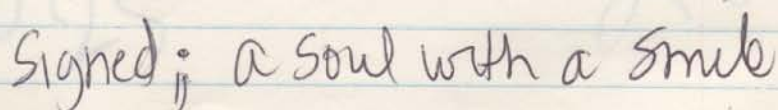 Signed; a soul with a smile